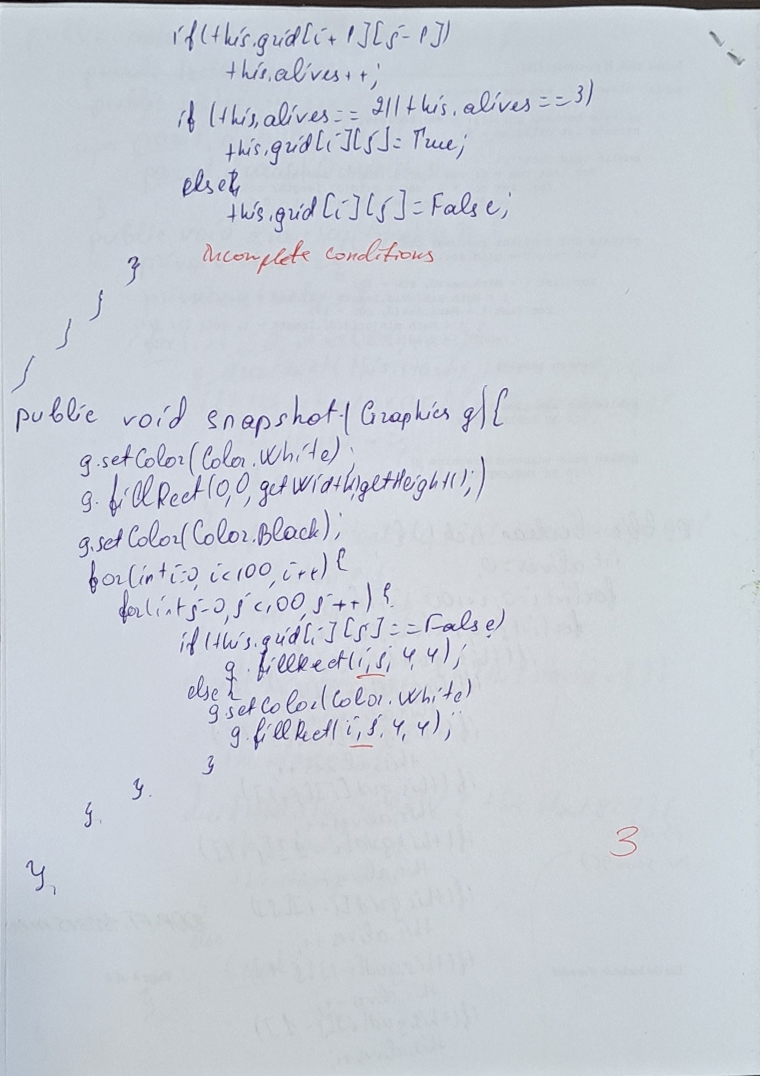 if(this.grid[i+1][j-1])
this.alives++;
if (this.alives == 2||this.alives==3)
this.grid[i][j]=True;
else{
this.grid[i][j]=False;
}
Incomplete conditions
}
}
}
public void snapshot(Graphics g){
g.setColor(Color.White);
g.fillRect(0,0,getWidth,getHeight();)
g.setColor(Color.Black);
for(int i=0, i<100, i++) {
for(int j=0, j<100, j++) {
if(this.grid[i][j]==False)
g.fillRect(i,j,4,4);
else{
g.setColor(Color.White)
g.fillRect(i,j,4,4);
}
}.
}.
3
}.